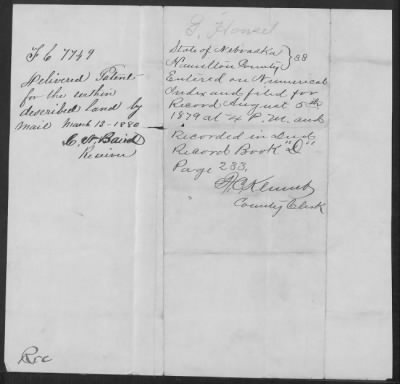 F C 7749
Delivered Patent
for the within
described land by
mail March 12-1880
C. N. Baird
Receiver
State of Nebraska
Hamilton County } SS
Entered on Numerical
Index and filed for
Record August 5th
1879 at 4 P.M. and
Recorded in Deed
Record Book "D"
Page 233.
County Clerk
Rec